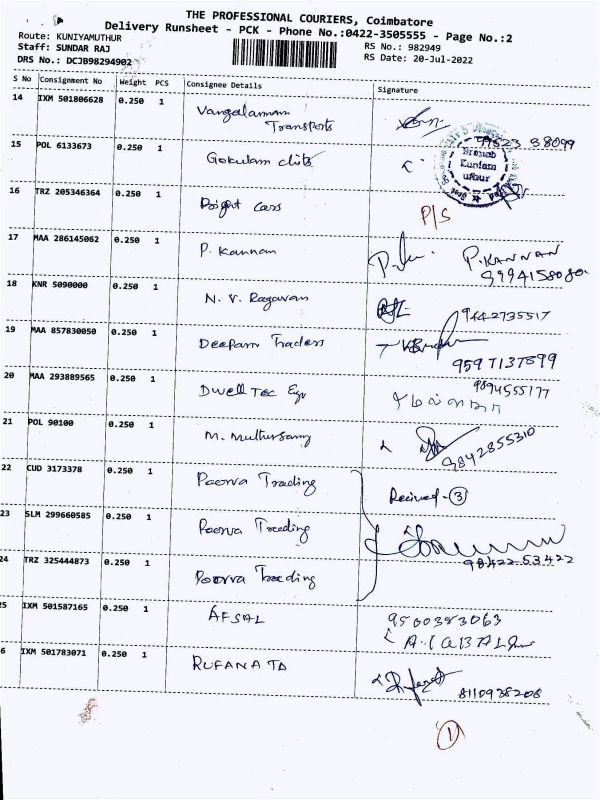 THE PROFESSIONAL COURIERS, Coimbatore
Delivery Runsheet - PCK - Phone No.:0422-3505555 - Page No.:2
Route: KUNIYAMUTHUR
RS No.: 982949
Staff: SUNDAR RAJ
RS Date: 20-Jul-2022
DRS No.: DCJB98294902
S No Consignment No Weight PCS Consignee Details Signature
14 IXM 501806628 0.250 1 Vangalamman
Transports
99523 38099
15 POL 6133673 0.250 1 Gokulam chits
Branch
Kuniam
uthur
16 TRZ 205346364 0.250 1 Bright cars P/S
17 MAA 286145062 0.250 1 P. Kannan P.KANNAN
9994158080.
18 KNR 5090000 0.250 1 N. V. Ragavan 9442735517
19 MAA 857830050 0.250 1 Deepam Traders
9597137599
20 MAA 293889565 0.250 1 Dwell Tec Eqr 9894555177
21 POL 90100 0.250 1 M. Muthusamy 9842855310
22 CUD 3173378 0.250 1 Poorva Trading Recived - 3
23 SLM 299660585 0.250 1 Poorva Trading
98422 53422
24 TRZ 325444873 0.250 1 Poorva Trading
25 IXM 501587165 0.250 1 AFSAL 9500383063
6 IXM 501783071 0.250 1 RUFANA TD
8110938208
1